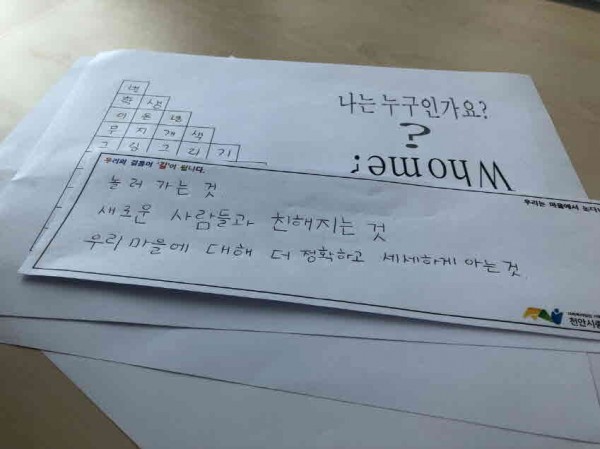 나는 누구인가요?
?
Who me!
학 생
무 지 개 색
그 림 그 리 기
우리의 걸음이 '길'이 됩니다.
우리는 마을에서
놀러 가는 것
새로운 사람들과 친해지는 것
우리 마을에 대해 더 정확하고 세세하게 아는 것
천안시